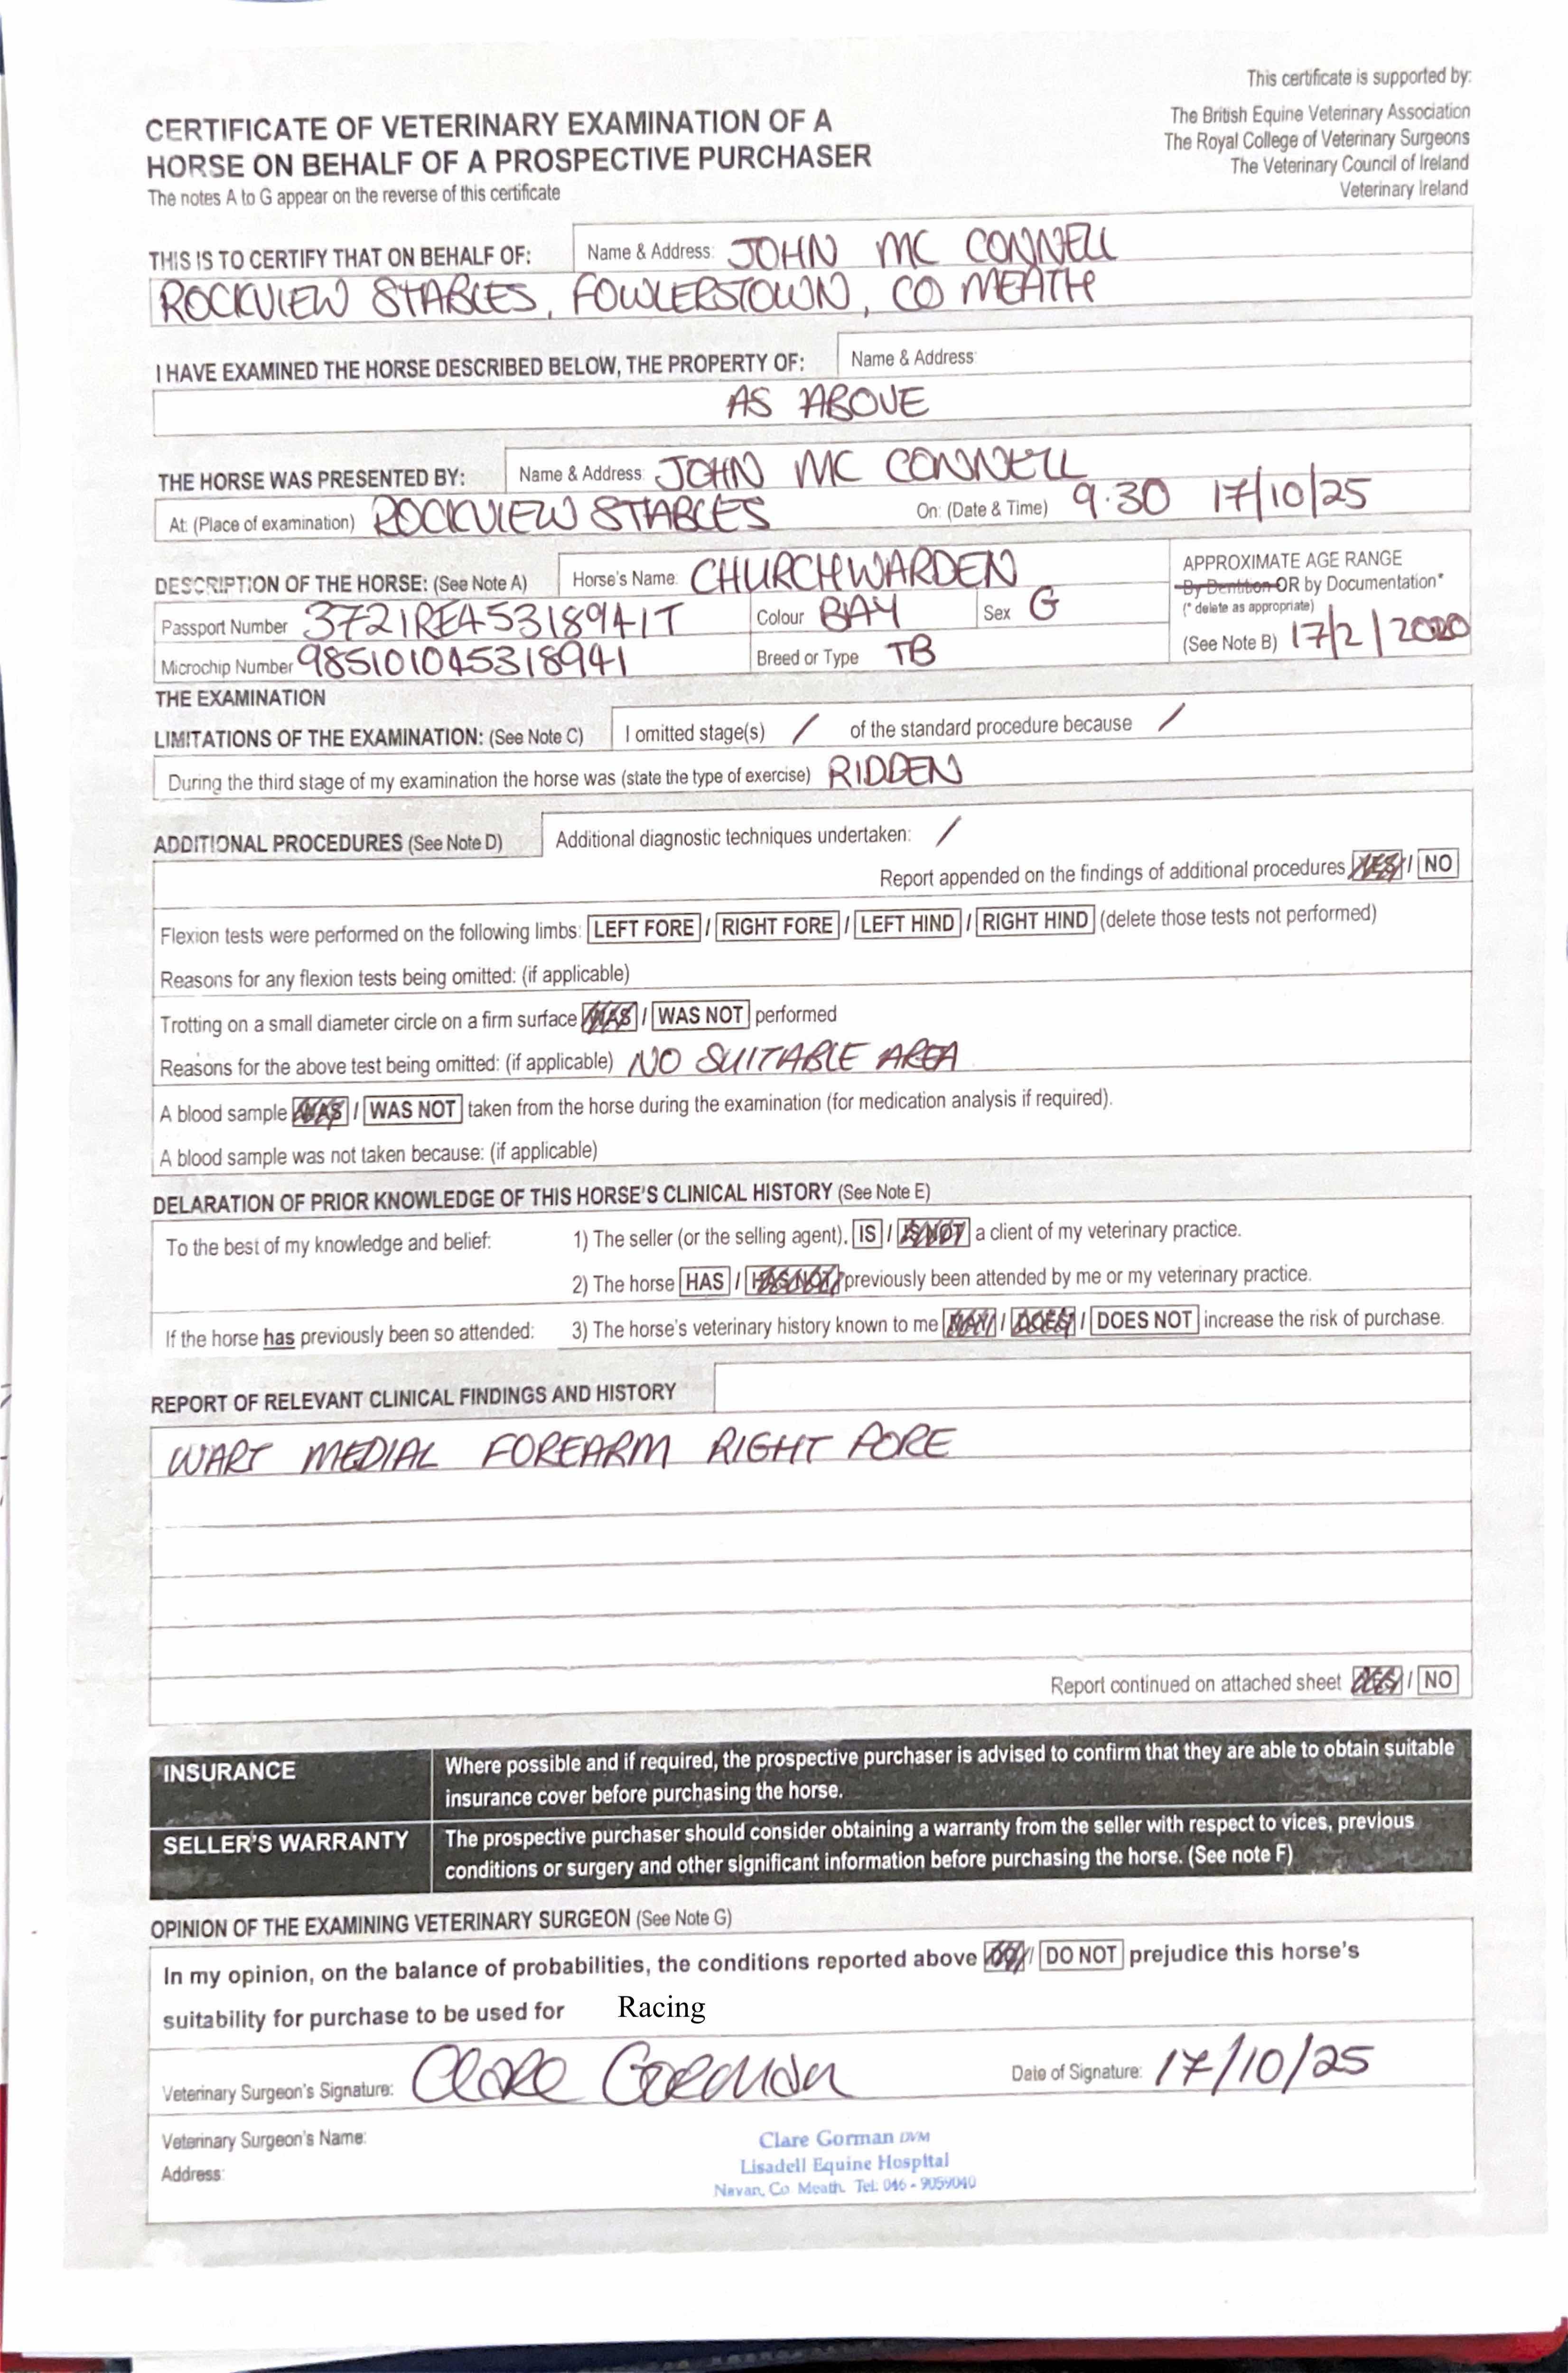 This certificate is supported by:
The British Equine Veterinary Association
The Royal College of Veterinary Surgeons
The Veterinary Council of Ireland
Veterinary Ireland
CERTIFICATE OF VETERINARY EXAMINATION OF A
HORSE ON BEHALF OF A PROSPECTIVE PURCHASER
The notes A to G appear on the reverse of this certificate
THIS IS TO CERTIFY THAT ON BEHALF OF: Name & Address: JOHN MC CONNELL
ROCKVIEW STABLES, FOWLERSTOWN, CO MEATH
I HAVE EXAMINED THE HORSE DESCRIBED BELOW, THE PROPERTY OF: Name & Address:
AS ABOVE
THE HORSE WAS PRESENTED BY: Name & Address: JOHN MC CONNELL
At: (Place of examination) ROCKVIEW STABLES On: (Date & Time) 9.30 17/10/25
DESCRIPTION OF THE HORSE: (See Note A) Horse's Name: CHURCHWARDEN
APPROXIMATE AGE RANGE
By Dentition OR by Documentation*
(* delete as appropriate)
(See Note B) 17/2/2020
Passport Number 372IRE45318941T Colour BAY Sex G
Microchip Number 985101045318941 Breed or Type TB
THE EXAMINATION
LIMITATIONS OF THE EXAMINATION: (See Note C) I omitted stage(s) / of the standard procedure because /
During the third stage of my examination the horse was (state the type of exercise) RIDDEN
ADDITIONAL PROCEDURES (See Note D) Additional diagnostic techniques undertaken: /
Report appended on the findings of additional procedures YES / NO
Flexion tests were performed on the following limbs: LEFT FORE / RIGHT FORE / LEFT HIND / RIGHT HIND (delete those tests not performed)
Reasons for any flexion tests being omitted: (if applicable)
Trotting on a small diameter circle on a firm surface WAS / WAS NOT performed
Reasons for the above test being omitted: (if applicable) NO SUITABLE AREA
A blood sample WAS / WAS NOT taken from the horse during the examination (for medication analysis if required).
A blood sample was not taken because: (if applicable)
DELARATION OF PRIOR KNOWLEDGE OF THIS HORSE'S CLINICAL HISTORY (See Note E)
To the best of my knowledge and belief: 1) The seller (or the selling agent), IS / IS NOT a client of my veterinary practice.
2) The horse HAS / HAS NOT previously been attended by me or my veterinary practice.
If the horse has previously been so attended: 3) The horse's veterinary history known to me MAY / DOES / DOES NOT increase the risk of purchase.
REPORT OF RELEVANT CLINICAL FINDINGS AND HISTORY
WART MEDIAL FOREARM RIGHT FORE
Report continued on attached sheet YES / NO
INSURANCE Where possible and if required, the prospective purchaser is advised to confirm that they are able to obtain suitable
insurance cover before purchasing the horse.
SELLER'S WARRANTY The prospective purchaser should consider obtaining a warranty from the seller with respect to vices, previous
conditions or surgery and other significant information before purchasing the horse. (See note F)
OPINION OF THE EXAMINING VETERINARY SURGEON (See Note G)
In my opinion, on the balance of probabilities, the conditions reported above DO / DO NOT prejudice this horse's
suitability for purchase to be used for Racing
Veterinary Surgeon's Signature: Clare Gorman Date of Signature: 17/10/25
Veterinary Surgeon's Name:
Address:
Clare Gorman DVM
Lisadell Equine Hospital
Navan, Co Meath. Tel: 046 - 9059040